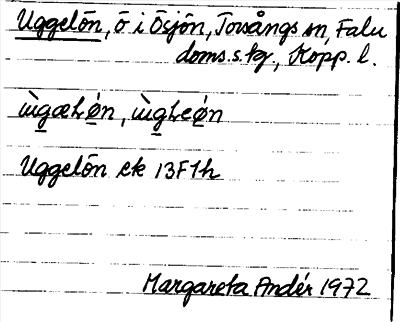 Uggelön, ö i Ösjön, Torsångs sn, Falu
doms.s. tg., Kopp. l.
ùgæLø̀n, ùgLeø̀n
Uggelön ek 13F1h
Margareta Andér 1972